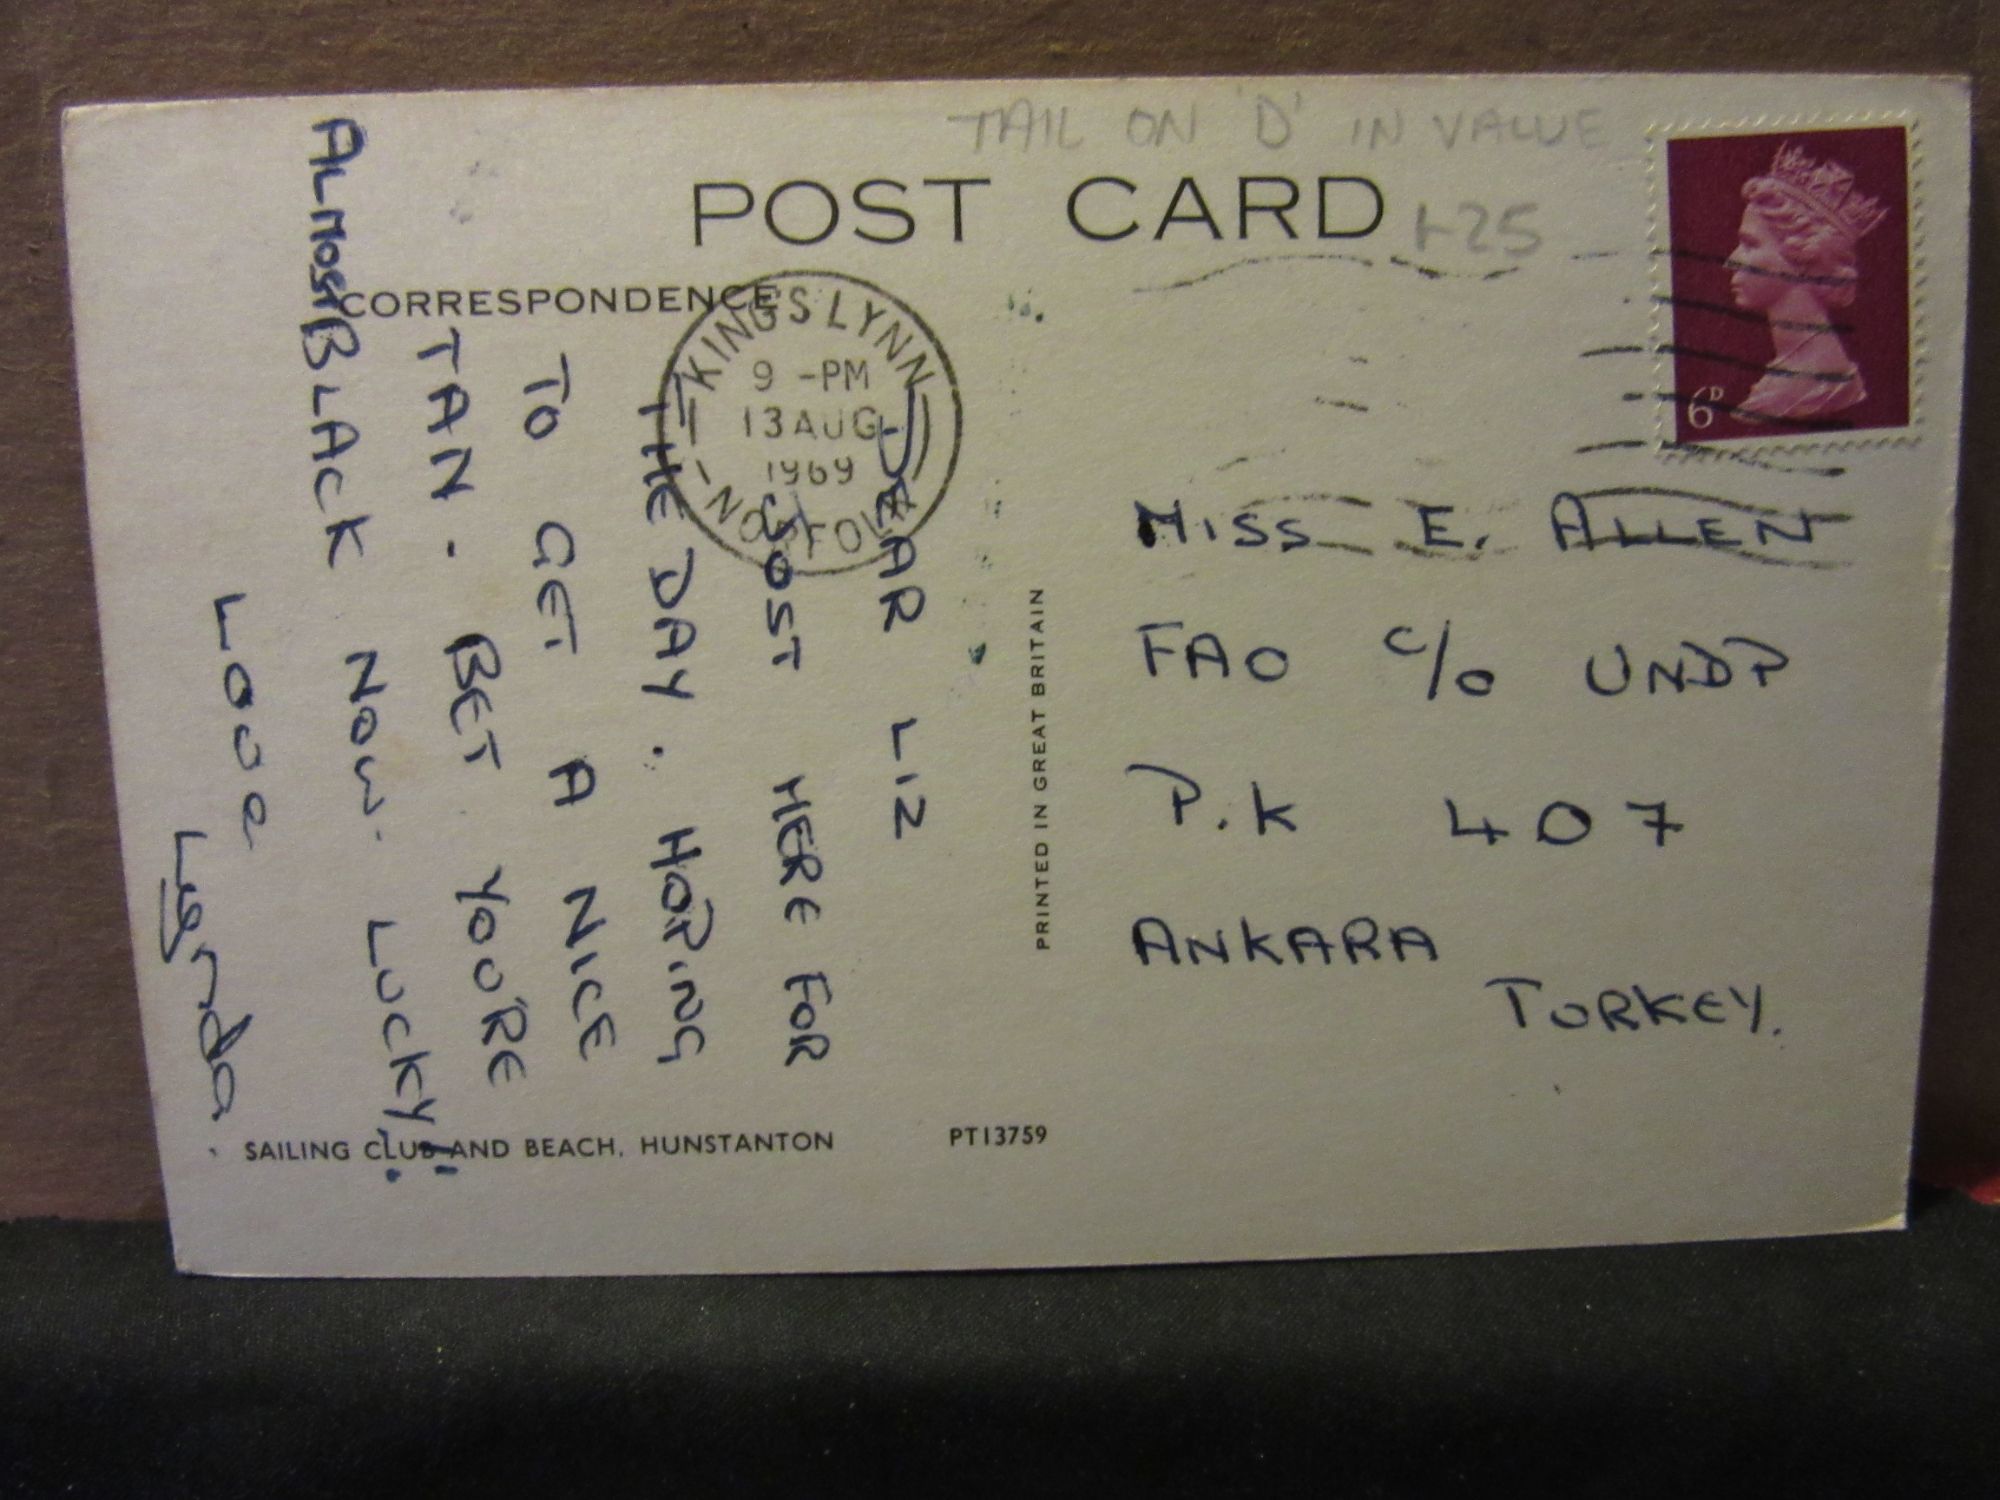 TAIL ON 'D' IN VALUE
POST CARD
CORRESPONDENCE
KING'S LYNN
9 -PM
13 AUG
1969
NORFOLK
6D
DEAR LIZ
JUST HERE FOR
THE DAY. HOPING
TO GET A NICE
TAN. BET YOURE
ALMOST BLACK NOW. LUCKY!!
LOVE
Lynda.
MISS E. ALLEN
FAO C/O UNDP
P.K 407
ANKARA
TURKEY.
PRINTED IN GREAT BRITAIN
SAILING CLUB AND BEACH, HUNSTANTON
PT13759